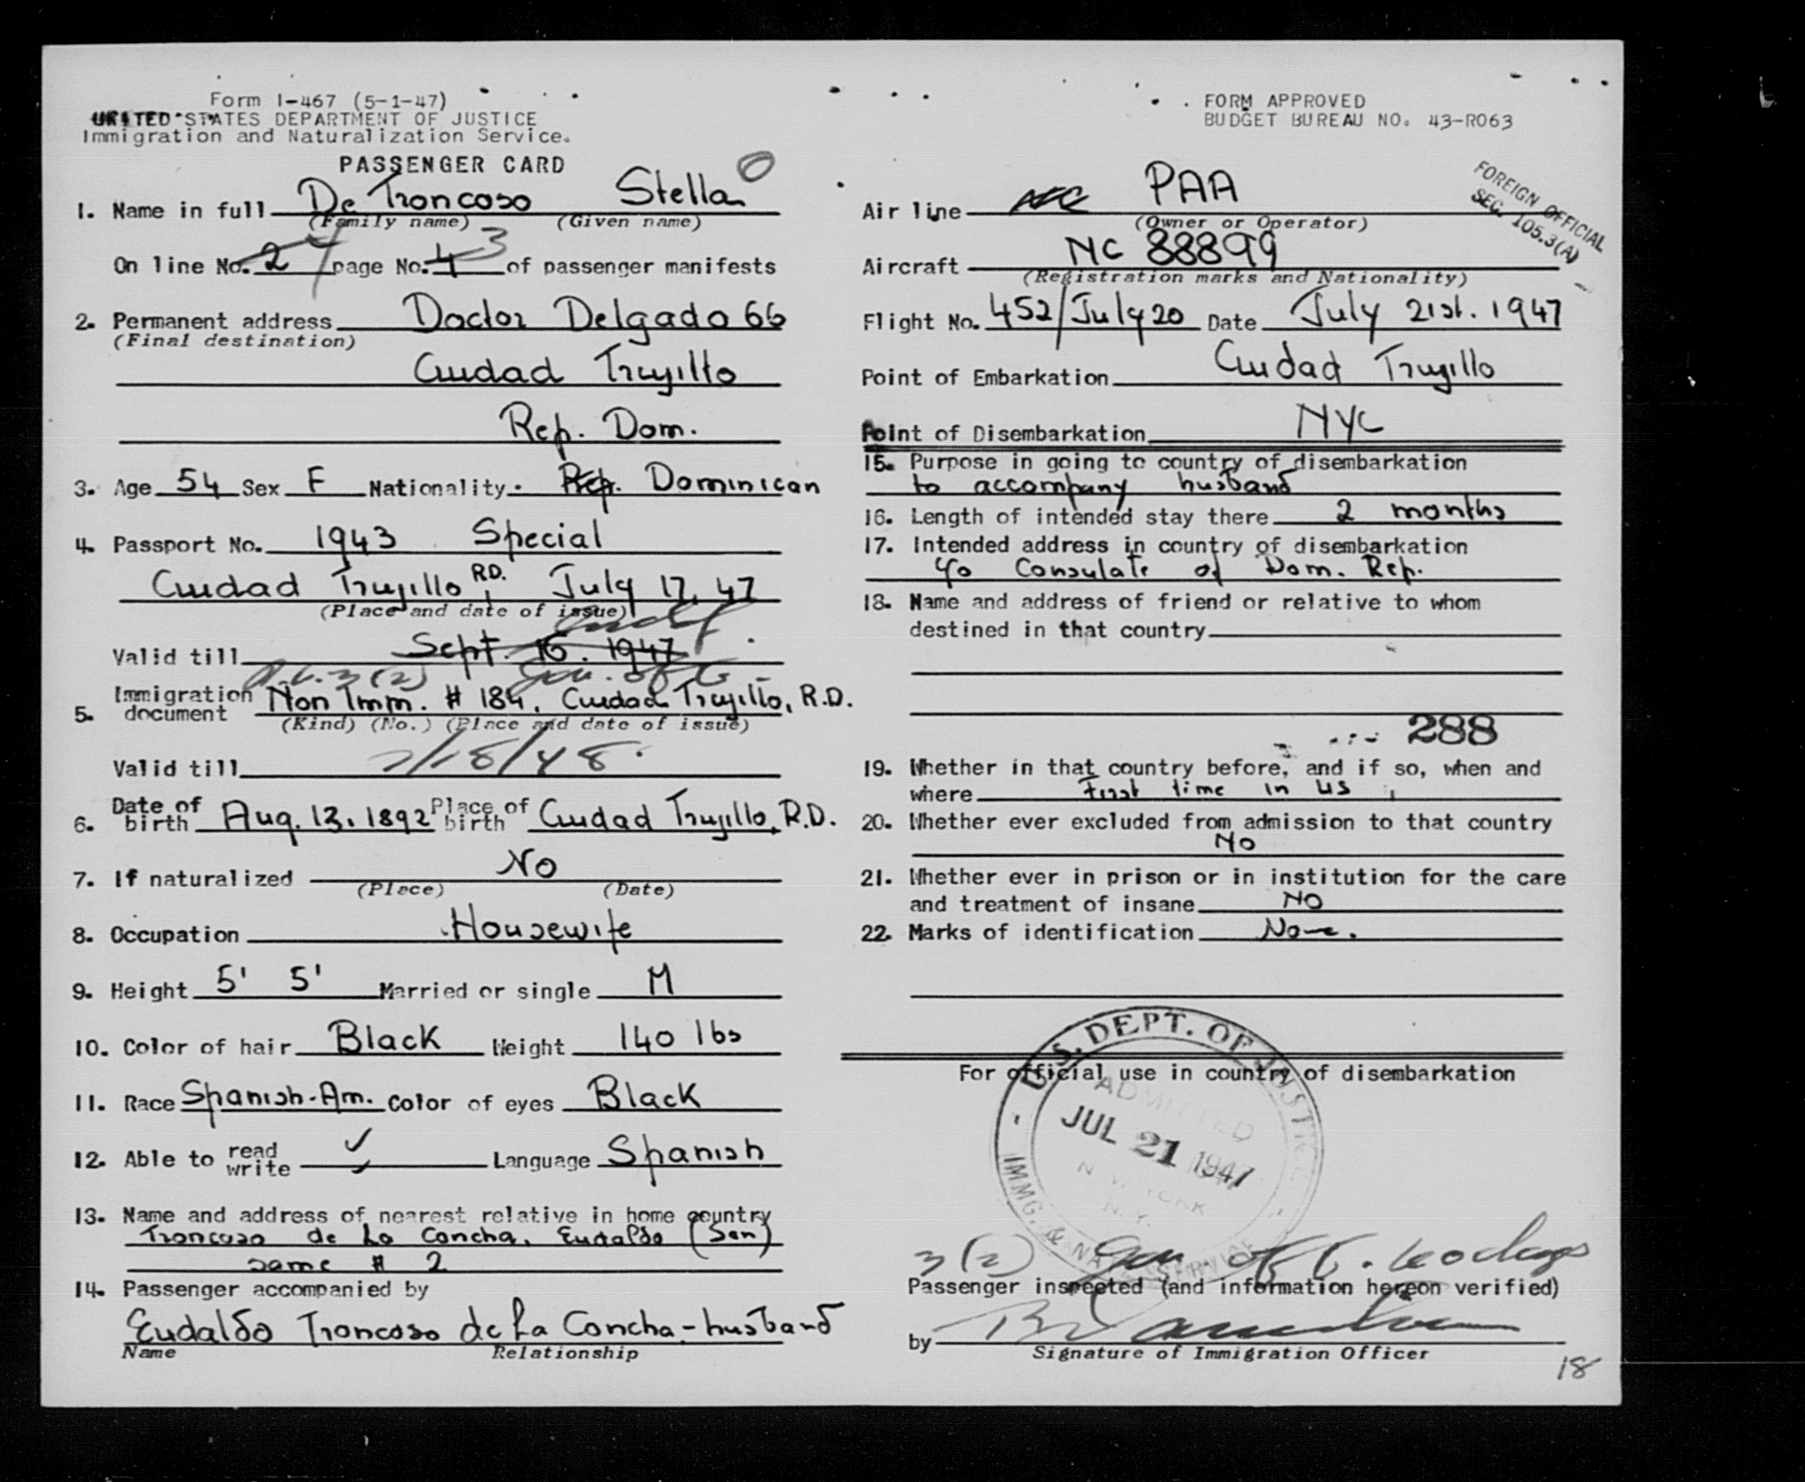 Form I-467 (5-1-47)
UNITED STATES DEPARTMENT OF JUSTICE
Immigration and Naturalization Service.
PASSENGER CARD
1. Name in full De Troncoso Stella
(Family name) (Given name)
On line No. 2 page No. 4 3 of passenger manifests
2. Permanent address Doctor Delgado 66
(Final destination)
Ciudad Trujillo
Rep. Dom.
3. Age 54 Sex F Nationality Rep. Dominican
4. Passport No. 1943 Special
Ciudad Trujillo R.D. July 17, 47
(Place and date of issue)
Valid till Sept. 16. 1947
3(2)
5. Immigration document Non Imm. # 184, Ciudad Trujillo, R.D.
(Kind) (No.) (Place and date of issue)
Valid till 7/18/48.
6. Date of birth Aug. 13. 1892 Place of birth Ciudad Trujillo, R.D.
7. If naturalized No
(Place) (Date)
8. Occupation Housewife
9. Height 5' 5' Married or single M
10. Color of hair Black Weight 140 lbs
11. Race Spanish-Am. Color of eyes Black
12. Able to read write ✓ Language Spanish
13. Name and address of nearest relative in home country
Troncoso de La Concha, Eudaldo (Son)
same # 2
14. Passenger accompanied by
Eudaldo Troncoso de La Concha - husband
Name Relationship
FORM APPROVED
BUDGET BUREAU NO. 43-R063
FOREIGN OFFICIAL
SEC. 105.3(A)
Air line PAA
(Owner or Operator)
Aircraft NC 88899
(Registration marks and Nationality)
Flight No. 452/July 20 Date July 21st. 1947
Point of Embarkation Ciudad Trujillo
Point of Disembarkation NYC
15. Purpose in going to country of disembarkation
to accompany husband
16. Length of intended stay there 2 months
17. Intended address in country of disembarkation
c/o Consulate of Dom. Rep.
18. Name and address of friend or relative to whom
destined in that country
288
19. Whether in that country before, and if so, when and
where First time in US
20. Whether ever excluded from admission to that country
No
21. Whether ever in prison or in institution for the care
and treatment of insane No
22. Marks of identification None.
For official use in country of disembarkation
U.S. DEPT. OF JUSTICE
ADMITTED
JUL 21 1947
NEW YORK
N.Y.
IMMG. & NATZ. SERVICE
3(2)
Passenger inspected (and information hereon verified)
by
Signature of Immigration Officer
18